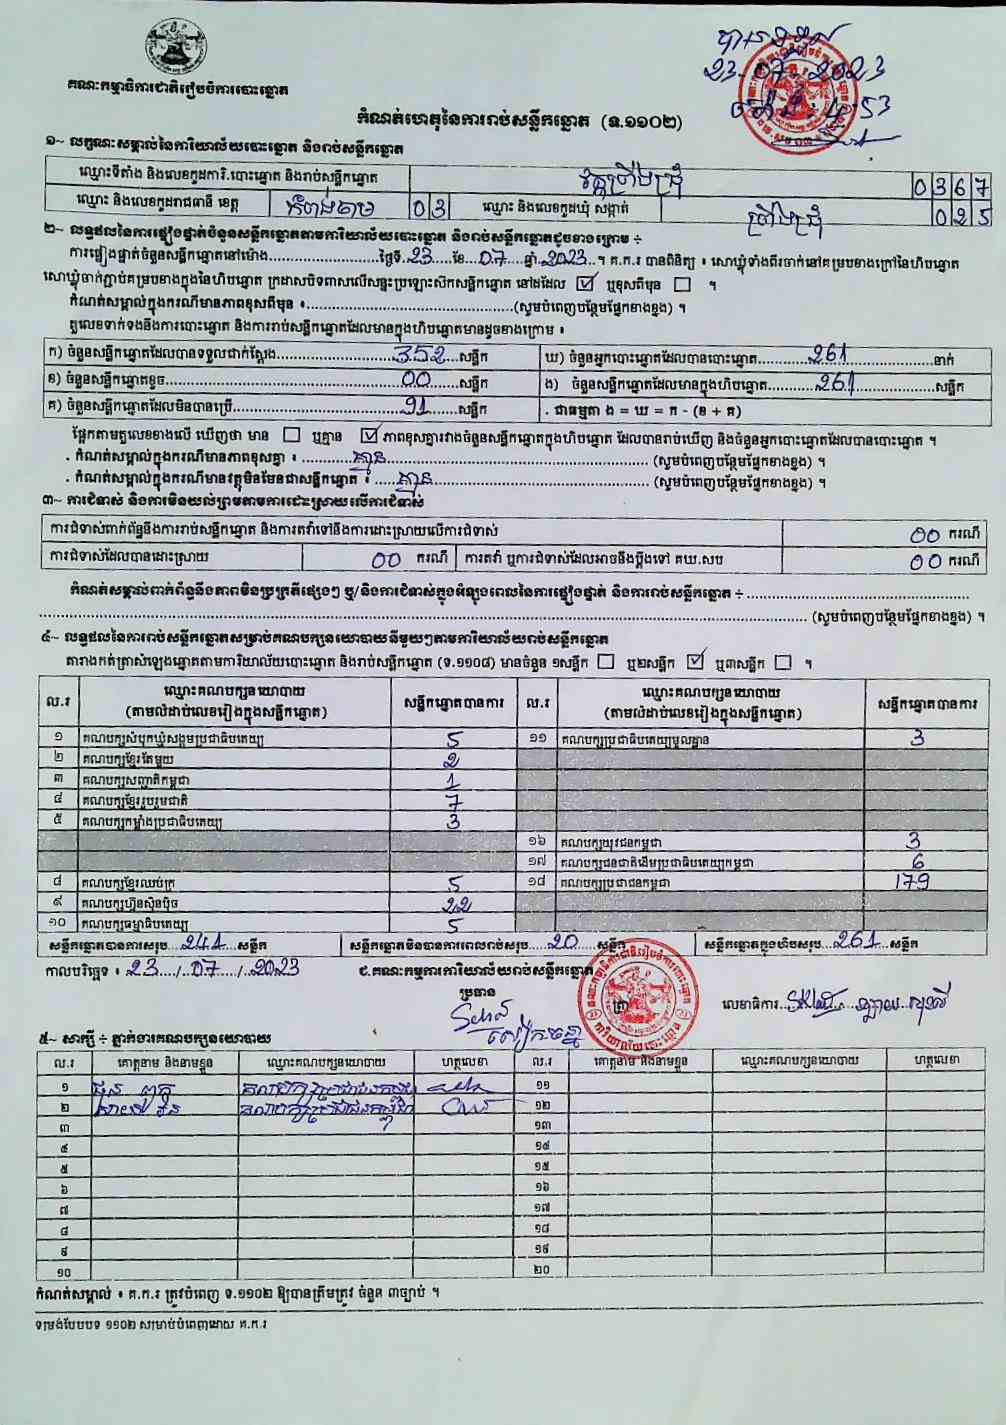 គណៈកម្មាធិការជាតិរៀបចំការបោះឆ្នោត
23.07.2023
កំណត់ហេតុនៃការរាប់សន្លឹកឆ្នោត (ទ.១១០២)
១~ លក្ខណៈសម្គាល់នៃការិយាល័យបោះឆ្នោត និងរាប់សន្លឹកឆ្នោត
ឈ្មោះទីតាំង និងលេខកូដការិ.បោះឆ្នោត និងរាប់សន្លឹកឆ្នោត 0367
ឈ្មោះ និងលេខកូដរាជធានី ខេត្ត កំពង់ចាម 03 ឈ្មោះ និងលេខកូដឃុំ សង្កាត់ 025
២~ លទ្ធផលនៃការផ្ទៀងផ្ទាត់ចំនួនសន្លឹកឆ្នោតតាមការិយាល័យបោះឆ្នោត និងរាប់សន្លឹកឆ្នោតដូចខាងក្រោម ÷
ការផ្ទៀងផ្ទាត់ចំនួនសន្លឹកឆ្នោតនៅម៉ោង..........ថ្ងៃទី.23....ខែ...07....ឆ្នាំ.2023..។ គ.ក.រ បានពិនិត្យ ៖ សោឃ្លុំទាំងពីរចាក់នៅគម្របខាងក្រៅនៃហិបឆ្នោត
សោឃ្លុំចាក់ភ្ជាប់គម្របខាងក្នុងនៃហិបឆ្នោត ក្រដាសបិទពាសលើសន្ទះប្រឡោះស៊កសន្លឹកឆ្នោត នៅដដែល ☑ ឬខុសពីមុន ☐ ។
កំណត់សម្គាល់ក្នុងករណីមានភាពខុសពីមុន ៖..........(សូមបំពេញបន្ថែមផ្នែកខាងខ្នង) ។
តួលេខទាក់ទងនឹងការបោះឆ្នោត និងការរាប់សន្លឹកឆ្នោតដែលមានក្នុងហិបឆ្នោតមានដូចខាងក្រោម ៖
ក) ចំនួនសន្លឹកឆ្នោតដែលបានទទួលជាក់ស្តែង..........352.....សន្លឹក ឃ) ចំនួនអ្នកបោះឆ្នោតដែលបានបោះឆ្នោត..........261..........នាក់
ខ) ចំនួនសន្លឹកឆ្នោតខូច..........00.....សន្លឹក ង) ចំនួនសន្លឹកឆ្នោតដែលមានក្នុងហិបឆ្នោត..........261..........សន្លឹក
គ) ចំនួនសន្លឹកឆ្នោតដែលមិនបានប្រើ..........91.....សន្លឹក . ជាធម្មតា ង = ឃ = ក - (ខ + គ)
ផ្អែកតាមតួលេខខាងលើ ឃើញថា មាន ☐ ឬគ្មាន ☑ ភាពខុសគ្នារវាងចំនួនសន្លឹកឆ្នោតក្នុងហិបឆ្នោត ដែលបានរាប់ឃើញ និងចំនួនអ្នកបោះឆ្នោតដែលបានបោះឆ្នោត ។
. កំណត់សម្គាល់ក្នុងករណីមានភាពខុសគ្នា ៖ ..........គ្មាន.......... (សូមបំពេញបន្ថែមផ្នែកខាងខ្នង) ។
. កំណត់សម្គាល់ក្នុងករណីមានវត្ថុមិនមែនជាសន្លឹកឆ្នោត ៖ .....គ្មាន.......... (សូមបំពេញបន្ថែមផ្នែកខាងខ្នង) ។
៣~ ការជំទាស់ និងការមិនយល់ព្រមតាមការដោះស្រាយលើការជំទាស់
ការជំទាស់ពាក់ព័ន្ធនឹងការរាប់សន្លឹកឆ្នោត និងការតវ៉ាទៅនឹងការដោះស្រាយលើការជំទាស់ 00 ករណី
ការជំទាស់ដែលបានដោះស្រាយ 00 ករណី ការតវ៉ា ឬការជំទាស់ដែលអាចនឹងប្តឹងទៅ គឃ.សប 00 ករណី
កំណត់សម្គាល់ពាក់ព័ន្ធនឹងភាពមិនប្រក្រតីផ្សេងៗ ឬ/និងការជំទាស់ក្នុងអំឡុងពេលនៃការផ្ទៀងផ្ទាត់ និងការរាប់សន្លឹកឆ្នោត ÷ ..........
.......... (សូមបំពេញបន្ថែមផ្នែកខាងខ្នង) ។
៤~ លទ្ធផលនៃការរាប់សន្លឹកឆ្នោតសម្រាប់គណបក្សនយោបាយនីមួយៗតាមការិយាល័យរាប់សន្លឹកឆ្នោត
តារាងកត់ត្រាសំឡេងឆ្នោតតាមការិយាល័យបោះឆ្នោត និងរាប់សន្លឹកឆ្នោត (ទ.១១០៨) មានចំនួន ១សន្លឹក ☐ ឬ២សន្លឹក ☑ ឬ៣សន្លឹក ☐ ។
ល.រ ឈ្មោះគណបក្សនយោបាយ (តាមលំដាប់លេខរៀងក្នុងសន្លឹកឆ្នោត) សន្លឹកឆ្នោតបានការ ល.រ ឈ្មោះគណបក្សនយោបាយ (តាមលំដាប់លេខរៀងក្នុងសន្លឹកឆ្នោត) សន្លឹកឆ្នោតបានការ
១ គណបក្សសំបុកឃ្មុំសង្គមប្រជាធិបតេយ្យ 5 ១១ គណបក្សប្រជាធិបតេយ្យមូលដ្ឋាន 3
២ គណបក្សខ្មែរតែមួយ 2
៣ គណបក្សសញ្ជាតិកម្ពុជា 1
៤ គណបក្សខ្មែររួបរួមជាតិ 7
៥ គណបក្សកម្លាំងប្រជាធិបតេយ្យ 3
១៦ គណបក្សយុវជនកម្ពុជា 3
១៧ គណបក្សជនជាតិដើមប្រជាធិបតេយ្យកម្ពុជា 6
៨ គណបក្សខ្មែរឈប់ក្រ 5 ១៨ គណបក្សប្រជាជនកម្ពុជា 179
៩ គណបក្សហ្វ៊ុនស៊ិនប៉ិច 22
១០ គណបក្សធម្មាធិបតេយ្យ 5
សន្លឹកឆ្នោតបានការសរុប...241....សន្លឹក សន្លឹកឆ្នោតមិនបានការពេលរាប់សរុប.....20....សន្លឹក សន្លឹកឆ្នោតក្នុងហិបសរុប...261...សន្លឹក
កាលបរិច្ឆេទ ៖ 23..../.07..../..2023 ជ.គណៈកម្មការការិយាល័យរាប់សន្លឹកឆ្នោត
ប្រធាន ត្រា លេខាធិការ
៥~ សាក្សី ÷ ភ្នាក់ងារគណបក្សនយោបាយ
ល.រ គោត្តនាម និងនាមខ្លួន ឈ្មោះគណបក្សនយោបាយ ហត្ថលេខា ល.រ គោត្តនាម និងនាមខ្លួន ឈ្មោះគណបក្សនយោបាយ ហត្ថលេខា
១ គណបក្សប្រជាជនកម្ពុជា ១១
២ គណបក្សប្រជាជនកម្ពុជា ១២
៣ ១៣
៤ ១៤
៥ ១៥
៦ ១៦
៧ ១៧
៨ ១៨
៩ ១៩
១០ ២០
កំណត់សម្គាល់ ៖ គ.ក.រ ត្រូវបំពេញ ទ.១១០២ ឱ្យបានត្រឹមត្រូវ ចំនួន ៣ច្បាប់ ។
ទម្រង់បែបបទ ១១០២ សម្រាប់បំពេញដោយ គ.ក.រ